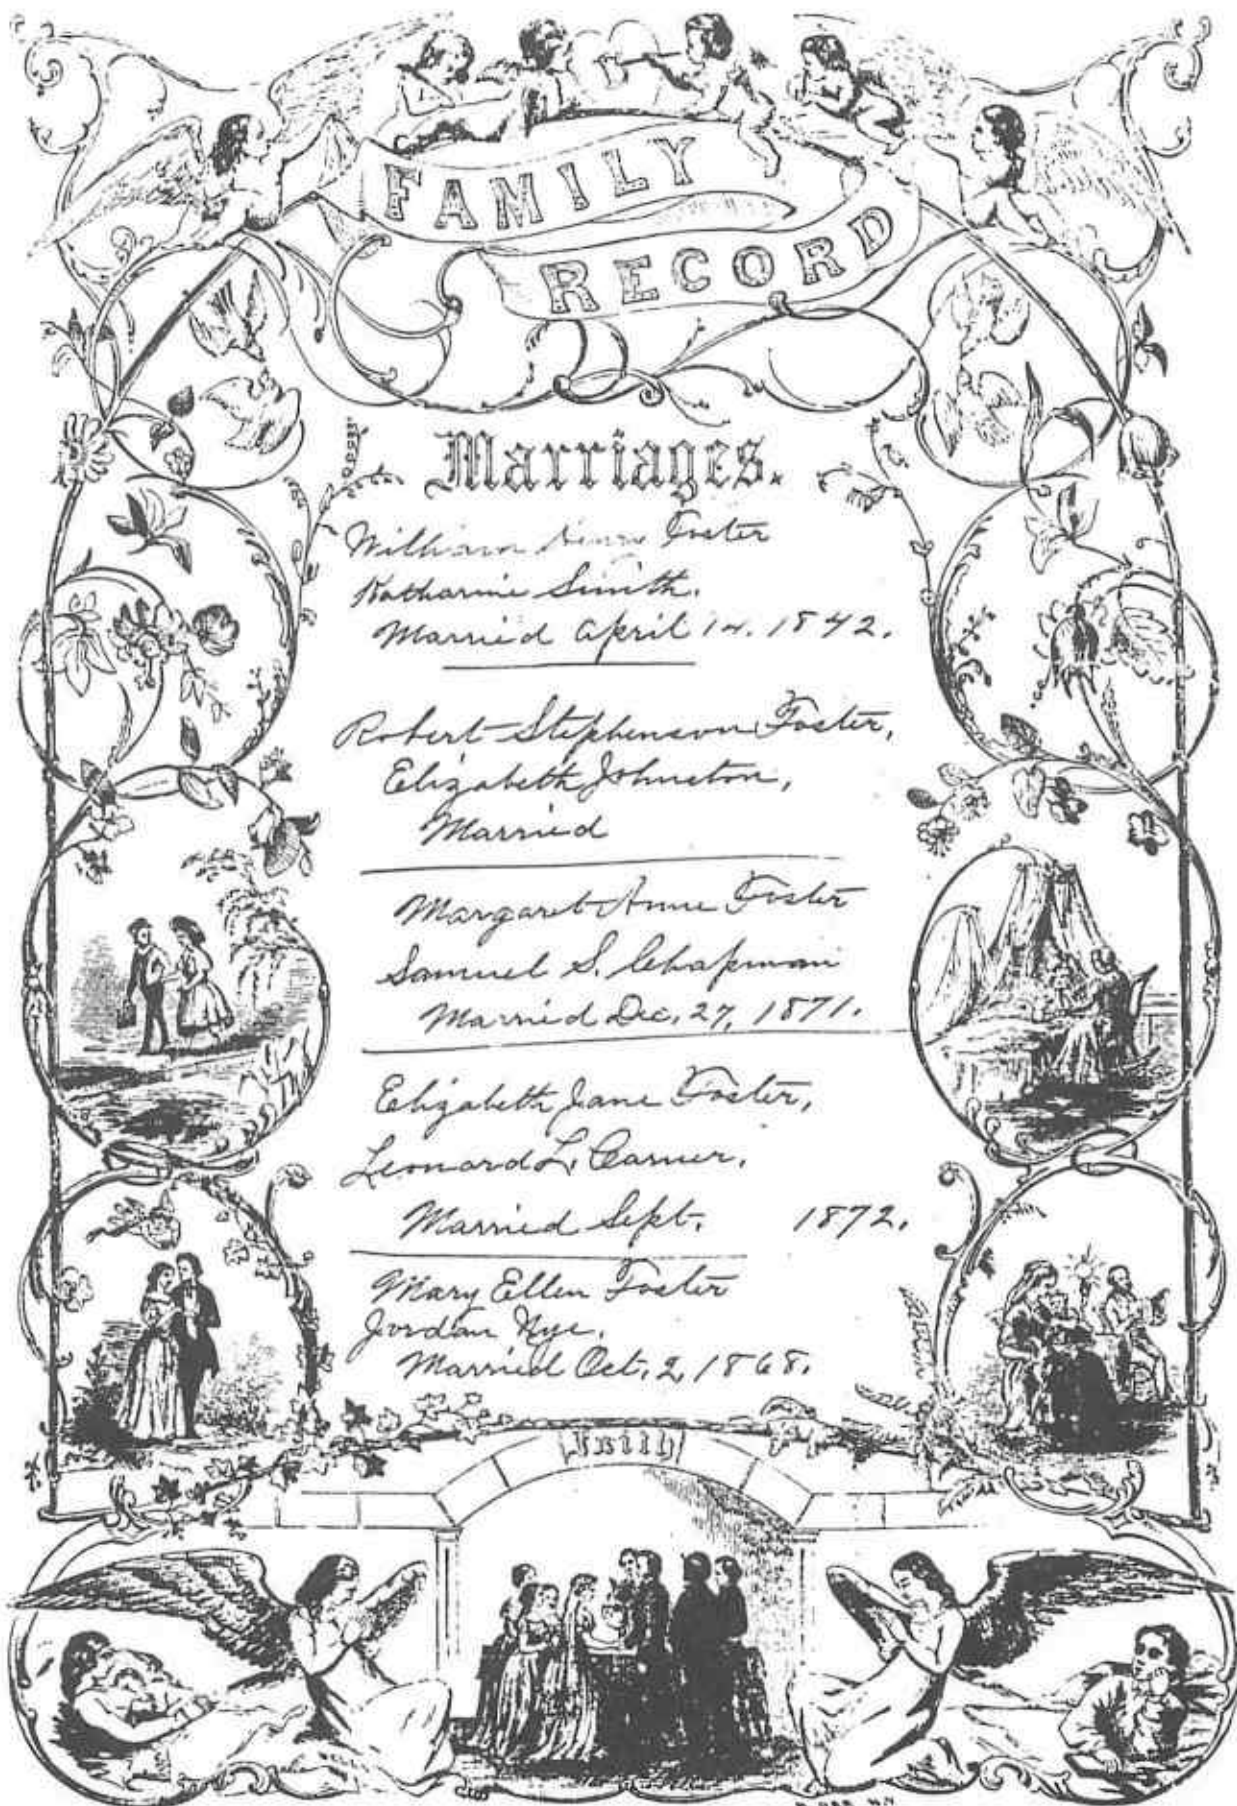 FAMILY
RECORD
Marriages.
William Henry Foster
Katharine Smith.
Married April 14, 1842.
Robert Stephenson Foster,
Elizabeth Johnston,
Married
Margaret Anne Foster
Samuel S. Chapman
Married Dec. 27, 1871.
Elizabeth Jane Foster,
Leonard L. Carner,
Married Sept. 1872.
Mary Ellen Foster
Jordan Nye.
Married Oct. 2, 1868.